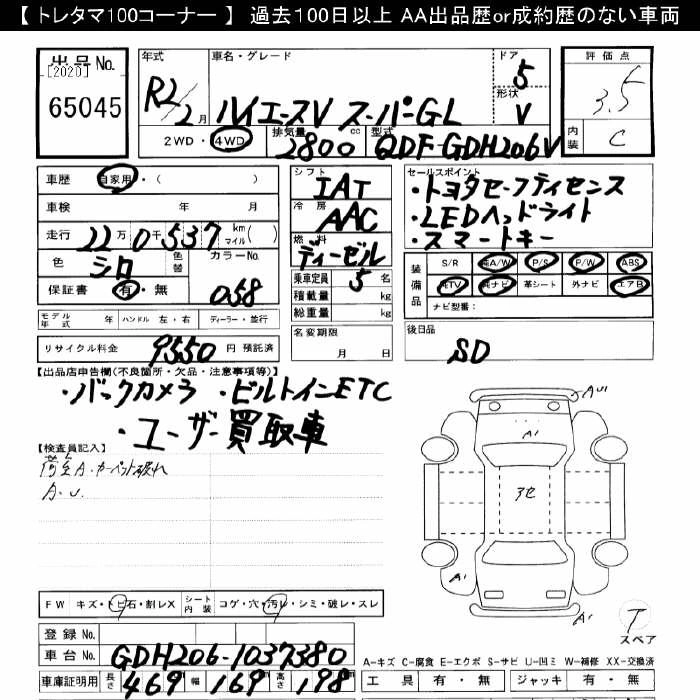 【 トレタマ100コーナー 】 過去100日以上 AA出品歴or成約歴のない車両
出品No.
[2020]
65045
年式 R2/2月
車名・グレード
ハイエースV スーパーGL
ドア 5
形状 V
評価点
3.5
内装 C
2WD・4WD
排気量 2800 cc
型式 QDF-GDH206V
車歴 自家用・( )
車検 年 月 日
走行 22万0千537 km マイル( )
色 シロ
色替
カラーNo. 058
保証書 有・無
モデル年式 年 ハンドル 左・右 ディーラー・並行
リサイクル料金 9550 円 預託済
シフト IAT
冷房 AAC
燃料 ディーゼル
乗車定員 5 名
積載量 kg
総重量 kg
名変期限
月 日
セールスポイント
・トヨタセーフティセンス
・LEDヘッドライト
・スマートキー
装備品
S/R 純A/W P/S P/W ABS
純TV 純ナビ 革シート 外ナビ エアB
ナビ型番:
後日品
SD
【出品店申告欄(不良箇所・欠品・注意事項等)】
・バックカメラ ・ビルトインETC
・ユーザー買取車
【検査員記入】
荷室A・カーペット破れ
A.U.
FW キズ・トビ石・割レX シート内装 コゲ・穴・汚レ・シミ・破レ・スレ
登録No.
車台No. GDH206-1037380
車庫証明用 長さ 469 幅 169 高さ 198
A1
3セ
A1
A1
T
スペア
A-キズ C-腐食 E-エクボ S-サビ U-凹ミ W-補修 XX-交換済
工具 有・無 ジャッキ 有・無